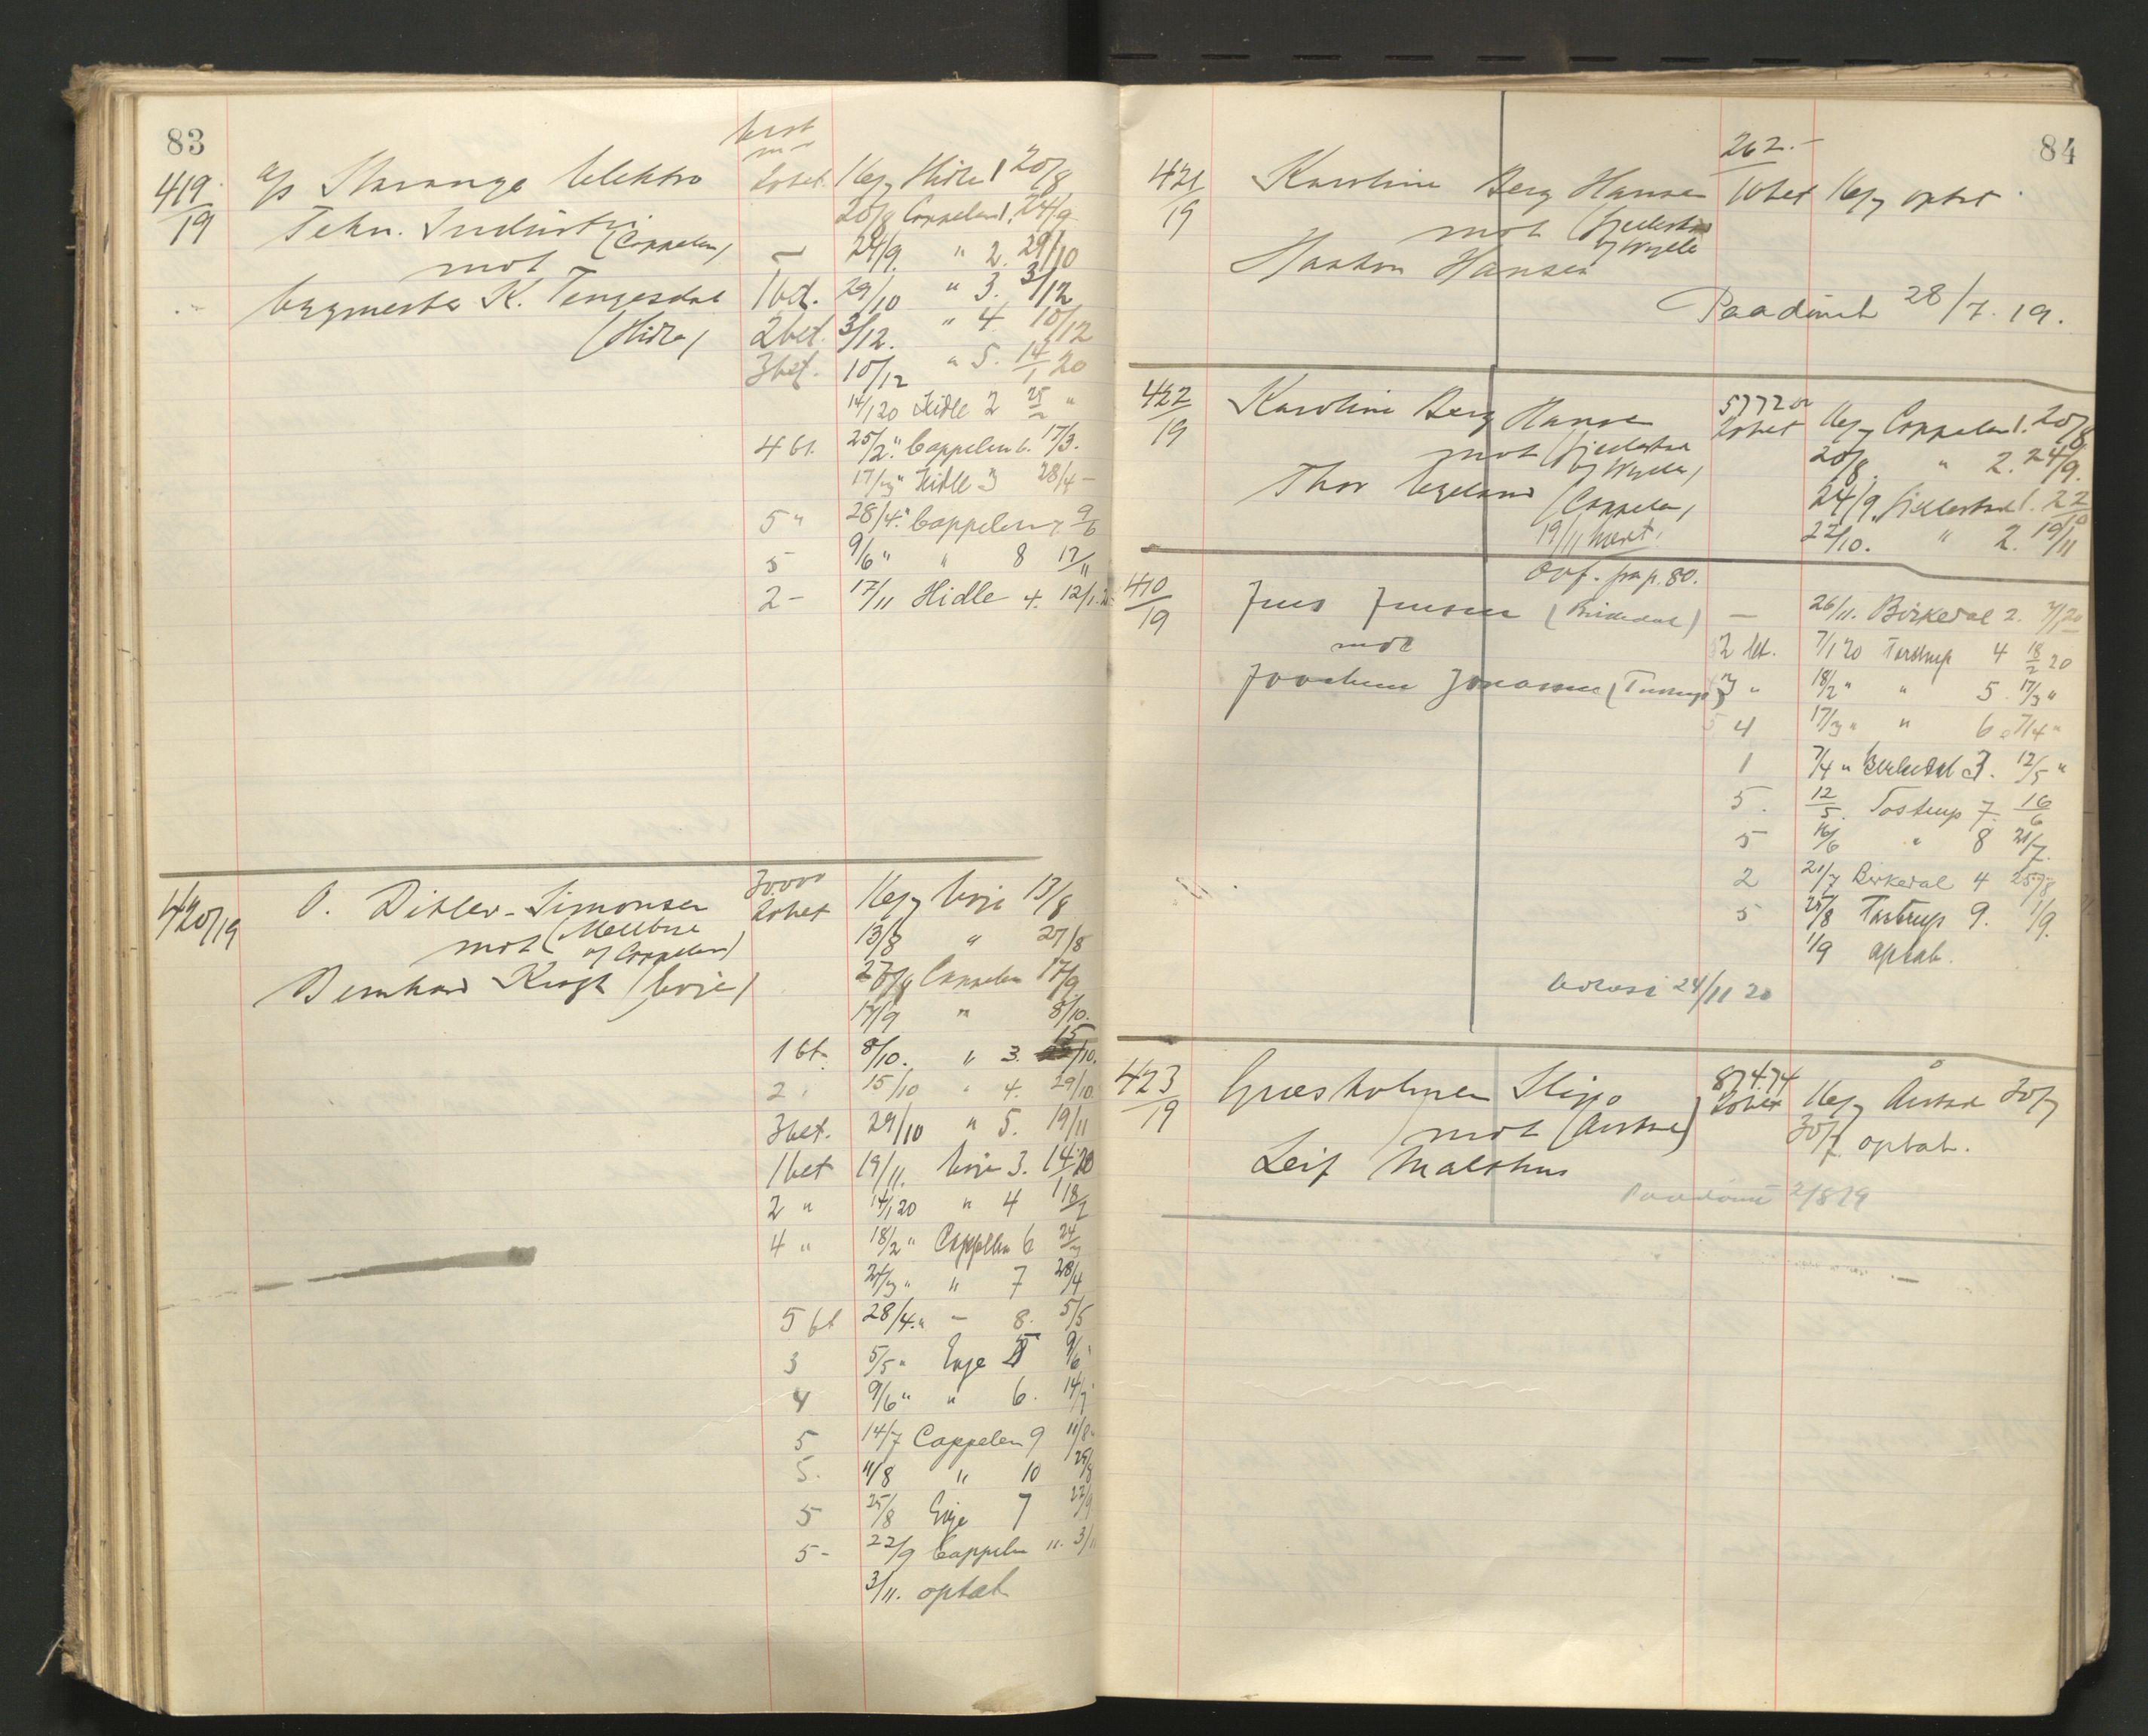 83
419/19 a/s Stavanger Elektro 2 bet. 16/7 Hidle 1 20/8
Tekn. Industri (Cappelen) 20/8 Cappelen 1. 24/9
mot — 24/9. " 2. 29/10
bygmester K. Tengesdal 1 bet. 29/10 " 3. 3/12
(Hidle) 2 bet. 3/12. " 4. 10/12
3 bet. 10/12 " 5. 14/1 20
14/1 20 Hidle 2 25/2 "
4 bt. 25/2 " Cappelen 6. 17/3.
17/3 " Hidle 3 28/4 —
5 " 28/4. " Cappelen 7. 9/6
5 9/6 " " 8 17/11
2 — 17/11 Hidle 4. 12/1
30.000
420/19 O. Ditlev-Simonsen 2 bet 16/7 Evje 13/8
mot (Mellbye og Cappelen) 13/8 " 27/8
Bernhard Krogh (Evje) 27/8 Cappelen 17/9
17/9 " 8/10.
1 bt. 8/10. " 3. 15/10.
2 " 15/10 " 4. 29/10
3 bet. 29/10 " 5. 19/11
1 bet 19/11. Evje 3. 14/1 20
2 " 14/1 20 " 4 18/2
4 " 18/2 " Cappelen 6 24/3
24/3 " " 7 28/4
5 bt 28/4. " — 8. 5/5
3 5/5 " Evje 5 9/6
4 9/6 " " 6. 14/7
5 14/7 Cappelen 9 11/8
5. 11/8 " 10 25/8
5 25/8 Evje 7 22/9
5 — 22/9 Cappelen 11. 3/11
3/11. optat
84
262.—
421/19 Karoline Berg Hansen 1 bet 16/7 optat
mot (Gjellestad og Wyller)
Haakon Hansen
Paadømt 28/7. 19.
422/19 Karoline Berg Hansen 2 bet 16/7 Cappelen 1. 20/8
mot (Gjellestad og Wyller) 20/8. " 2. 24/9.
Thor Egeland (Cappelen) 24/9 Gjellestad 1. 22/10
19/11 hævet. 22/10. " 2. 19/11
Ovf. fra p. 80.
410/19 Jens Jensen (Birkedal) — 26/11. Birkedal 2. 7/1 20
mot 2 bt. 7/1 20 Tostrup 4 18/2 20
Joachim Jonassen (Tostrup) 3 " 18/2 " " 5. 17/3 "
4 17/3 " " 6. 7/4 "
1 7/4 " Birkedal 3. 12/5 "
5. 12/5. Tostrup 7. 16/6
5 16/6 " 8 21/7.
2 21/7 Birkedal 4 25/8
5 25/8 Tostrup 9. 1/9.
1/9 optat.
24/11 20
874.74
423/19 Græsholmen Slip 2 bet 16/7 Årstad 30/7
mot (Årstad) 30/7. optat.
Leif Malthus
Paadømt 2/8 19